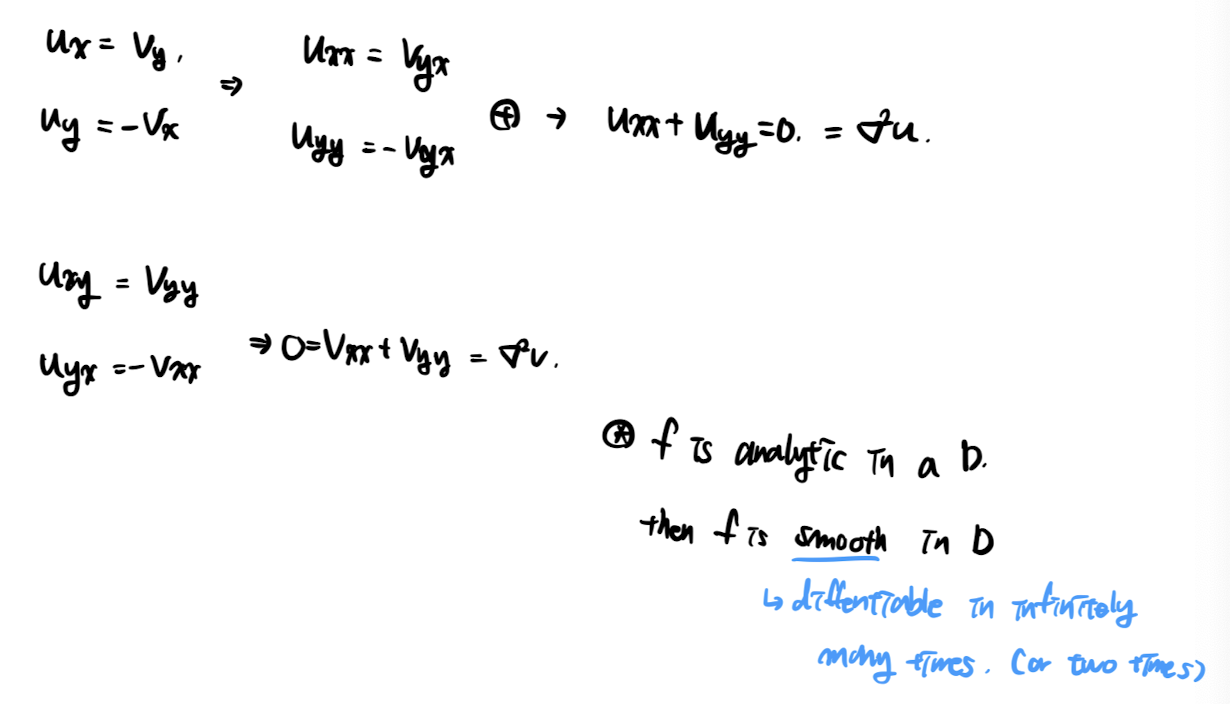 u_x = v_y , ⇒ u_xx = v_yx
u_y = -v_x u_yy = -v_yx ⊕ → u_xx + u_yy = 0. = ∇²u.
u_xy = v_yy
u_yx = -v_xx ⇒ 0 = v_xx + v_yy = ∇²v.
⊛ f is analytic in a D.
then f is smooth in D
↳ diffentiable in infinitely
many times. (or two times)